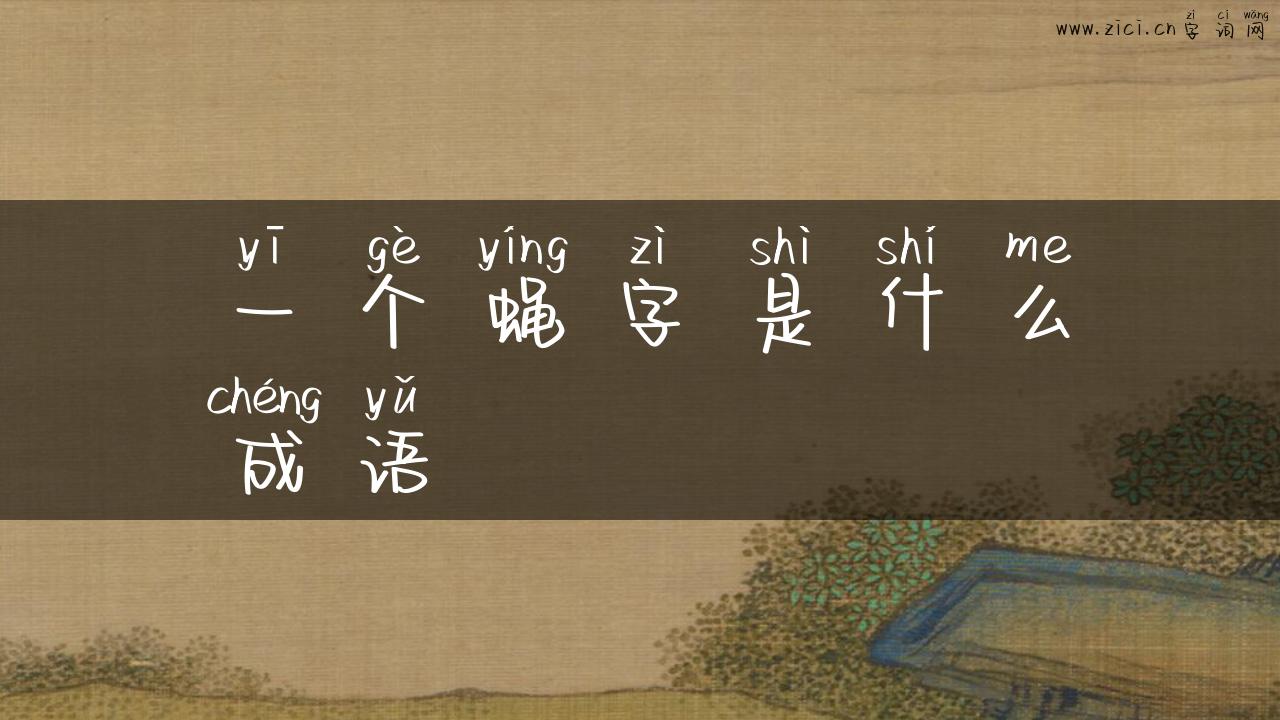 zì cí wǎng
www.zici.cn 字词网
yī gè yíng zì shì shí me
一个蝇字是什么
chéng yǔ
成语